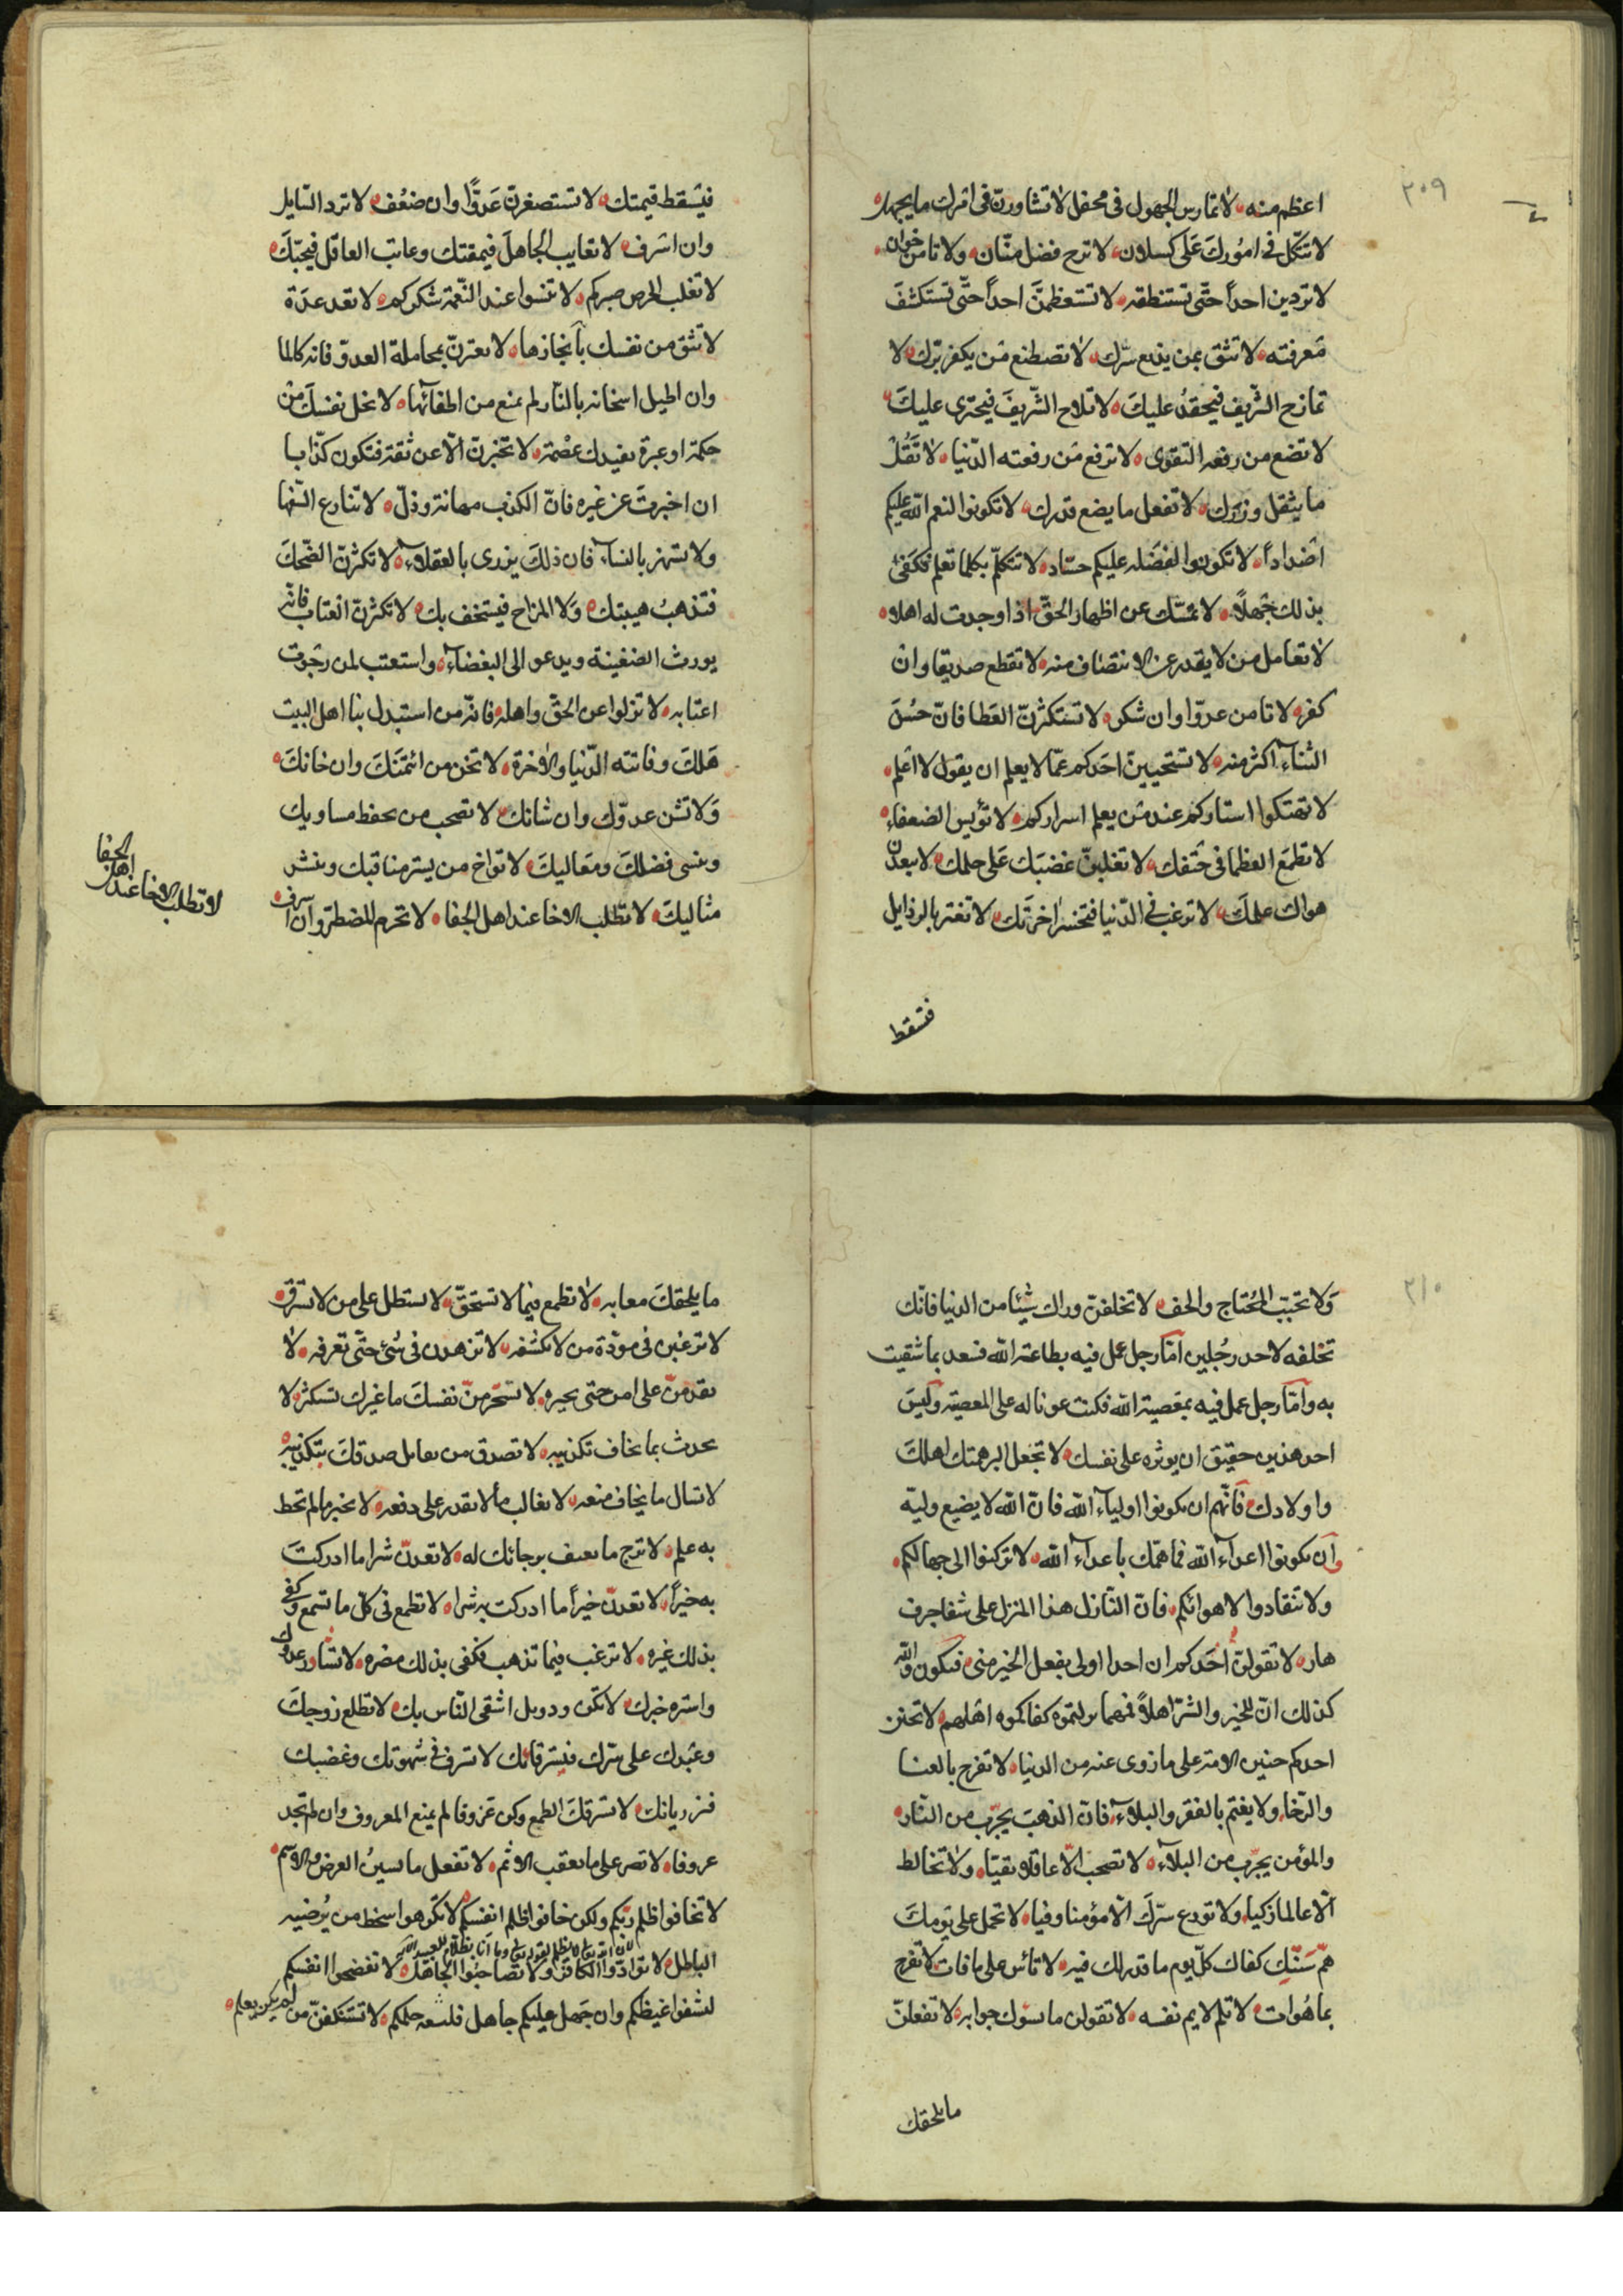 ٢٠٩
اعظم منه لا تمارس الجهول في محفل لا تشاورن في امرك ما يجهل
لا تتكل في امورك على كسلان لا ترج فضل منان ولا تامن خوان
لا تزدين احداً حتى تستنطقه لا تستعظمن احداً حتى تستكشف
معرفته لا تثق بمن يذيع سرك لا تصطنع من يكفر برك لا
تمازح الشريف فيحقد عليك لا تلاح الشريف فيجترى عليك
لا تضع من رفعه التقوى لا ترفع من رفعته الدنيا لا تقل
ما يثقل وزرك لا تفعل ما يضع قدرك لا تكونوا لنعم الله عليكم
اضداداً لا تكونوا لفضله عليكم حساد لا تتكلم بكلما تعلم فكفى
بذلك جهلاً لا تمسك عن اظهار الحق اذا وجدت له اهلا
لا تعامل من لا يقدر عن الانتصاف منه لا تقطع صديقا وان
كفر لا تامن عدوا وان شكر لا تستكثرن العطا فان حسن
الثناء اكثر منه لا تستحيين احدكم عما لا يعلم ان يقول لا اعلم
لا تهتكوا استاركم عند من يعلم اسراركم لا تؤيس الضعفاء
لا تطمع العظما في حتفك لا تغلبن غضبك على حلمك لا يبعدن
هواك علمك لا ترغب في الدنيا فتخسر اخرتك لا تغتر بالرذايل
فتسقط
فيسقط قيمتك لا تستصغرن عدوًا وان ضعف لا ترد السايل
وان اشرف لا تعايب الجاهل فيمقتك وعاتب العاقل فيحبك
لا تغلب الحرص صبركم لا تنسوا عند النعمة شكركم لا تعد عدة
لا تثق من نفسك بانجازها لا تغترن بمجاملة العدو فانه كالما
وان اطيل اسخانه بالنار لم يمنع من اطفائها لا تخل نفسك من
حكمة او عبرة تفيدك عصمة لا تخبرن الا عن ثقة فتكون كذابا
ان اخبرت عن غيره فان الكذب مهانة وذل لا تنازع السفها
ولا تستهتر بالنساء فان ذلك يزرى بالعقلاء لا تكثرن الضحك
فتذهب هيبتك ولا المزاح فيستخف بك لا تكثرن العتاب فانه
يورث الضغينة ويدعو الى البغضاء واستعتب لمن رجوت
اعتابه لا تزلوا عن الحق واهله فانه من استبدل بنا اهل البيت
هلك وفاتته الدنيا والاخرة لا تخن من ائتمنك وان خانك
ولا تشن عدوك وان شانك لا تصحب من يحفظ مساويك
وينسى فضلك ومعاليك لا تواخ من يستر مناقبك وينشر
مثاليك لا تطلب الاخا عند اهل الجفا لا تحرم المضطر وان اسرف
لا تطلب الاخا عند اهل الجفا
٢١٠
ولا تخيب المحتاج والحف لا تخلفن وراك شيئا من الدنيا فانك
تخلفه لاحد رجلين اما رجل عمل فيه بطاعة الله فسعد بما شقيت
به واما رجل عمل فيه بمعصية الله فكنت عونا له على المعصية وليس
احد هذين حقيق ان يوثره على نفسك لا تجعل اكبر همتك اهلك
واولادك فانهم ان يكونوا اولياء الله فان الله لا يضيع وليه
وان يكونوا اعداء الله فما همك باعداء الله لا تركنوا الى جهالكم
ولا تنقادوا لاهوائكم فان النازل هذا المنزل على شفا جرف
هار لا تقولن احدكم ان احدا اولى بفعل الخير مني فيكون والله
كذلك ان للخير والشر اهلاً فمهما تركتموه كفاكموه اهلهم لا تحنن
احدكم حنين الامة على ما زوى عنه من الدنيا لا تفرح بالغنا
والرخا ولا يغتم بالفقر والبلاء فان الذهب يجرب من النار
والمؤمن يجرب من البلاء لا تصحب الا عاقلا تقيا ولا تخالط
الا عالما زكيا ولا تودع سرك الا مؤمنا وفيا لا تحمل على يومك
هم سنتك كفاك كل يوم ما قدر لك فيه لا تأس على ما فات لا تفرح
بما هو ات لا تلم لايم نفسه لا تقولن ما يسوك جوابه لا تفعلن
ما يلحقك
ما يلحقك معابه لا تطمع فيما لا تستحق لا تستطل على من لا تسترق
لا ترغبن في مودة من لا تكشفه لا تزهدن في شئ حتى تعرفه لا
تقدمن على امر حتى تخبره لا تسخرمن نفسك ما غيرك تستكثر لا
تحدث بما تخاف تكذيبه لا تصدق من يقابل صدقك بتكذيبه
لا تسال ما يخاف منعه لا تغالب ما لا تقدر على دفعه لا تخبر ما لم تحط
به علم لا ترج ما يعنف برجائك له لا تعدن شرا ما ادركت
به خيراً لا تعدن خيراً ما ادركت به شرا لا تطمع في كل ما تسمع وكفى
بذلك غيره لا ترغب فيما تذهب فكفى بذلك مضره لا تشاور عدوك
واستره خبرك لا تكن ودويل اشقى الناس بك لا تطلع زوجك
وعبدك على سرك فيسترقانك لا تسرف في شهوتك وغضبك
فيزريانك لا تسترقك الطمع وكن عزوفا لم يمنع المعروف وان لم تجد
عروفا لا تصر على ما يعقب الاثم لا تفعل ما يشين العرض والاسم
لا تخافوا ظلم ربكم ولكن خافوا ظلم انفسكم لا تكوهوا سخط من يرضيه
لان الله تعالى لا يظلم لقوله تعالى وما انا بظلام للعبيد
الباطل لا توادوا الكافر ولا تصاحبوا الجاهل لا تفضحوا انفسكم
لتشفوا غيظكم وان جهل عليكم جاهل فليسعه حلمكم لا تستنكفن من لم يكن يعلم